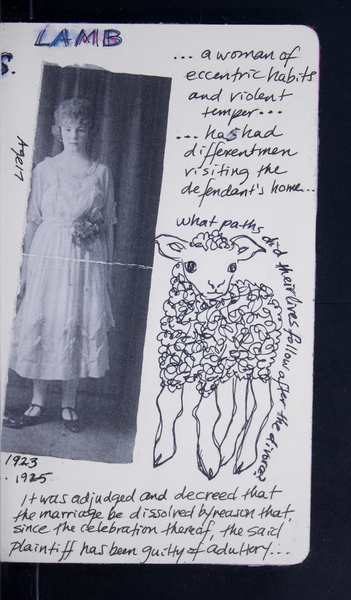 LAMB
S.
... a woman of
eccentric habits
and violent
temper...
... has had
different men
visiting the
defendant's home...
what paths did their lives follow after the divorce?
1923
.. 1925
It was adjudged and decreed that
the marriage be dissolved by reason that,
since the celebration thereof, the said
plaintiff has been guilty of adultory...